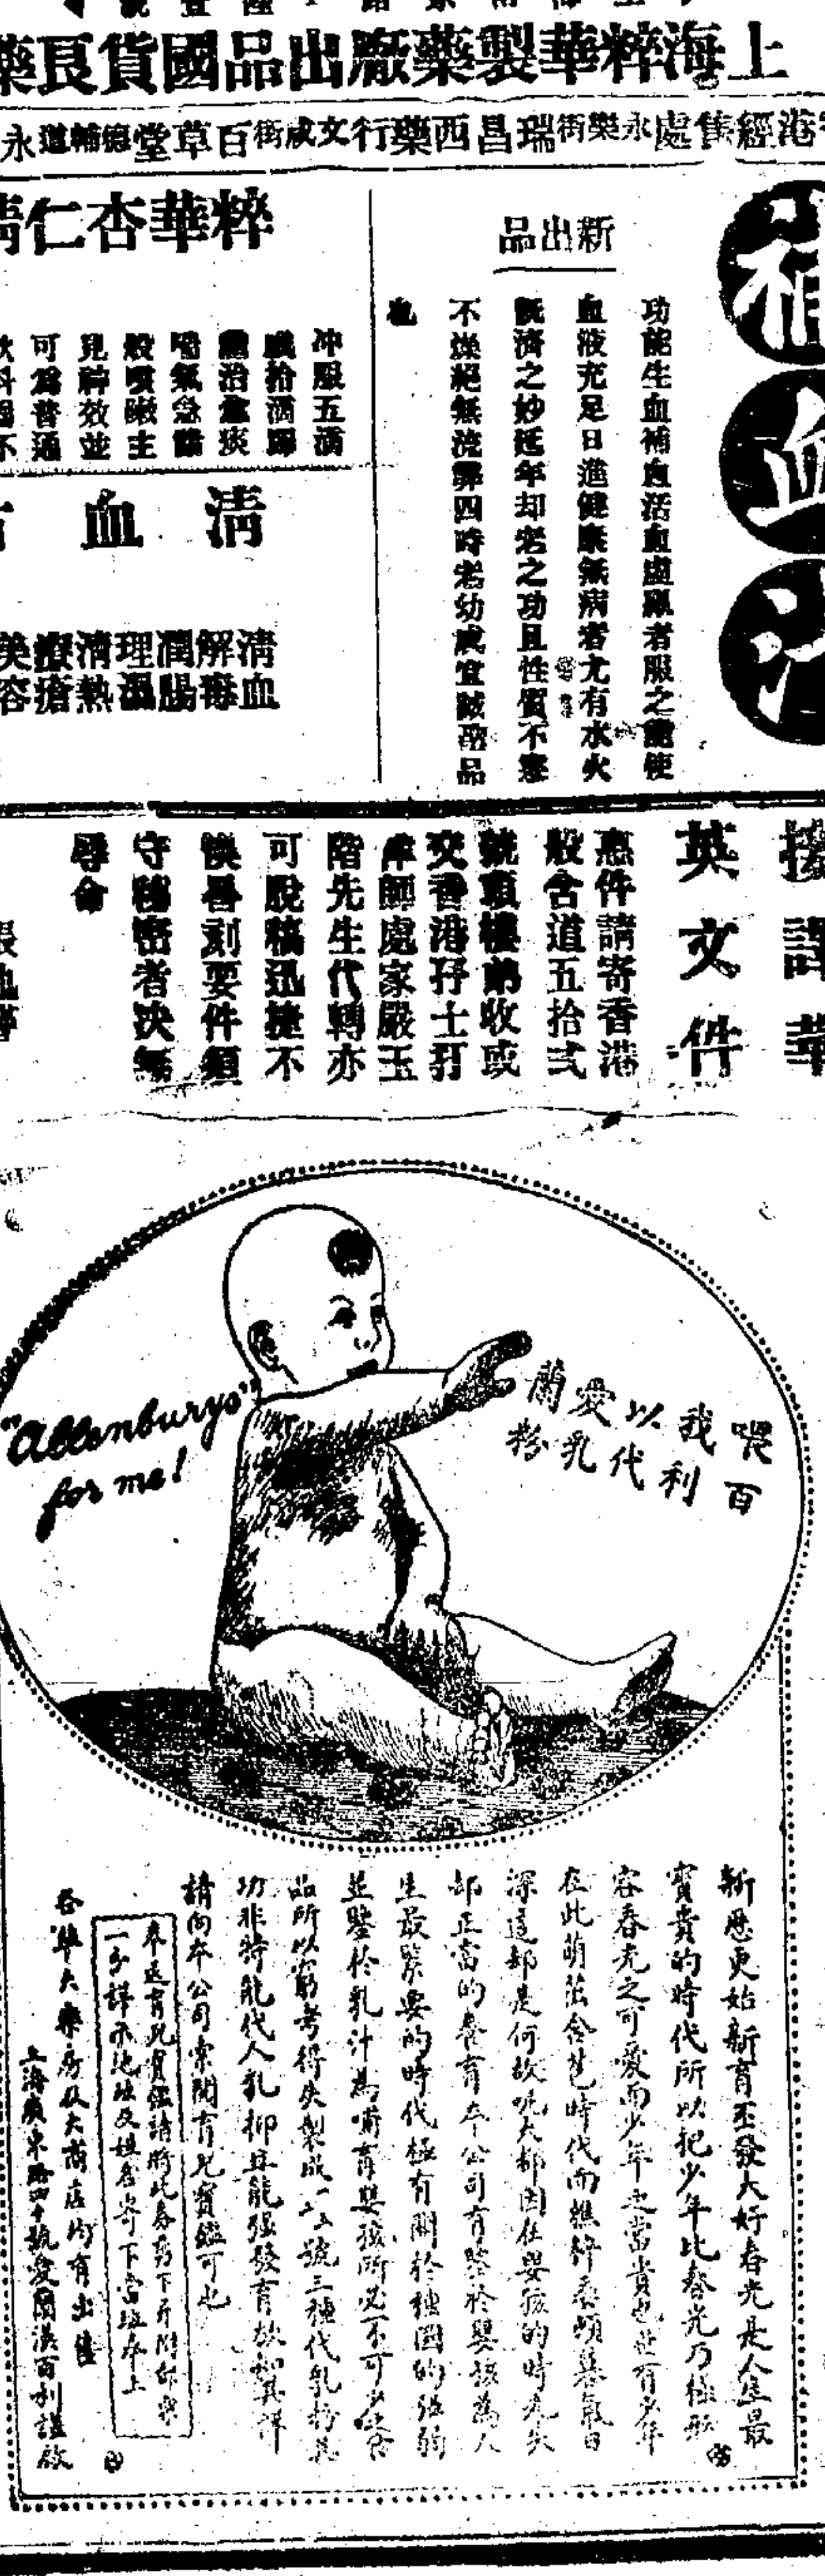 上海粹華製藥廠出品國貨良藥
港經售處永樂街瑞昌西藥行文咸街百草堂德輔道永
補血
新出品
功能生血補血活血虛弱者服之能使
血液充足日進健康無病者尤有水火
既濟之妙延年却老之功且性質不寒
不燥絕無流弊四時老幼咸宜誠聖品
也
粹華杏仁
冲服五滴
或拾滴歸
喘氣急
般咳嗽主
見神效並
可為普通
清血
清血
解毒
潤腸
理濕
清熱
療瘡
美容
接譯華
英文件
惠件請寄香港
般含道五拾弍
號頭樓弟收或
交香港孖士打
律師處家嚴玉
階先生代轉亦
可脫稿迅捷不
悞晷刻要件須
守秘密者決無
辱命
"Allenburys"
for me!
喂我以愛蘭
百利代乳粉
新歷更始新育丕發大好春光是人生最
寶貴的時代所以把少年比春光乃極形
容春光之可愛而少年之當貴也世有少年
在此萌茁含苞時代而憔悴
深這却是何故呢大都因在嬰孩的時光失
却正當的養育本公司有鑒於嬰孩為人
生最緊要的時代極有關於種國的強弱
並鑒於乳汁為哺育嬰孩所必不可少之食
品所以窮考得失製成一二三號三種代乳粉其
功非特能代人乳抑且能強發育故如其詳
請向本公司索閱育兒寶鑑可也
一分詳示地址及姓名寄下當班奉上
各埠大藥房及大商店均有出售
上海廣東路四十號愛蘭漢百利謹啟